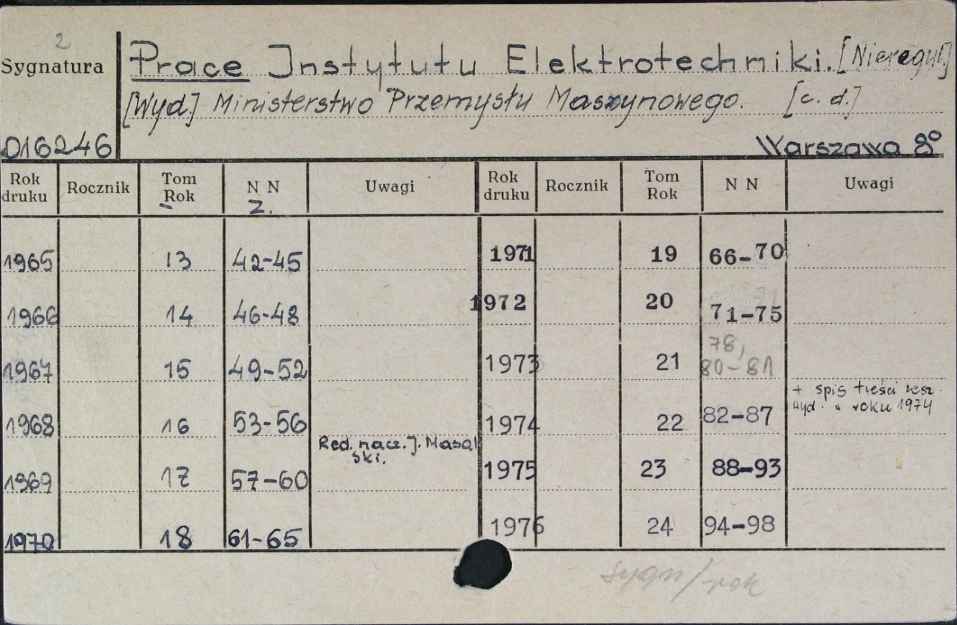 2
Sygnatura
Prace Instytutu Elektrotechniki. [Nieregul.]
[Wyd.] Ministerstwo Przemysłu Maszynowego. [c. d.]
D16246
Warszawa 8°
Rok druku Rocznik Tom Rok N N Z. Uwagi Rok druku Rocznik Tom Rok N N Uwagi
1965 13 42-45 1971 19 66-70
1966 14 46-48 1972 20 71-75
1967 15 49-52 1973 21 78, 80-81
1968 16 53-56 1974 22 82-87 + spis treści zesz. wyd. w roku 1974
Red. nacz. J. Masalski.
1969 17 57-60 1975 23 88-93
1970 18 61-65 1976 24 94-98
sygn/rok